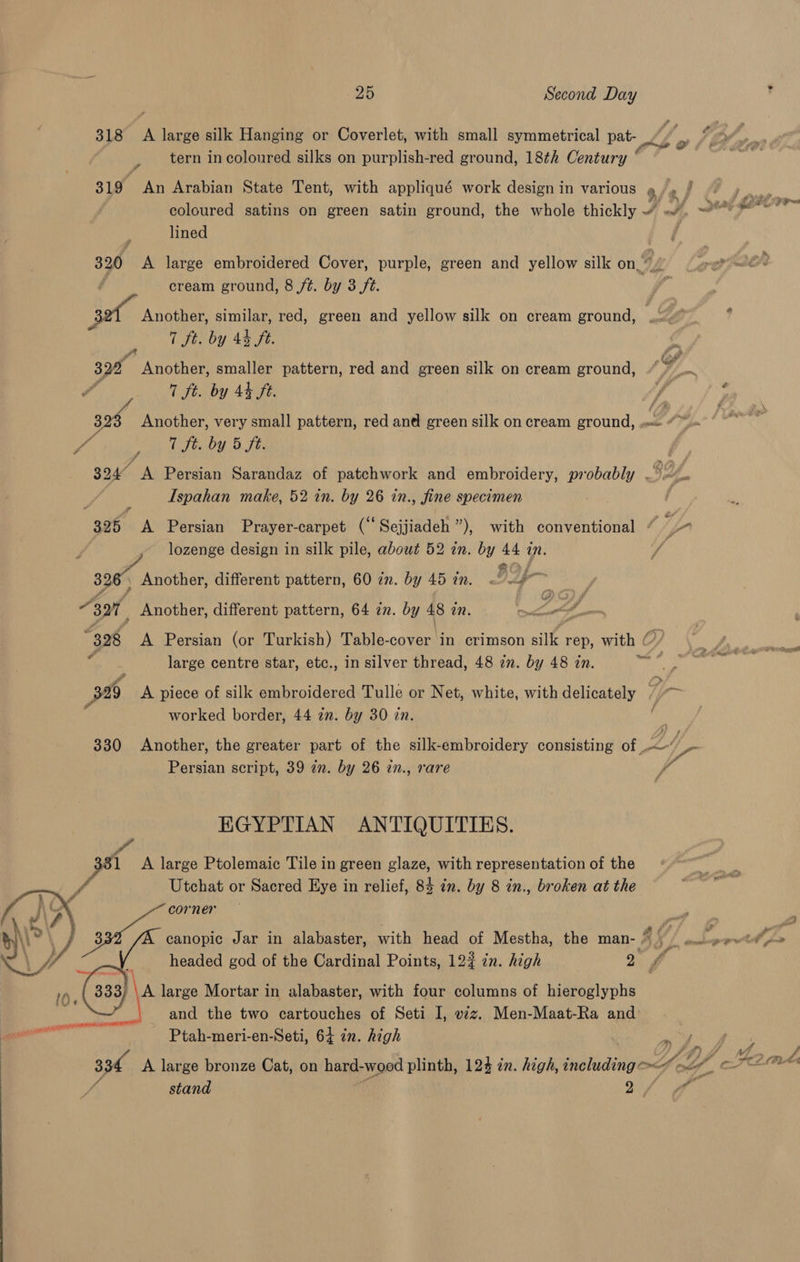 25 Second Day
318 A large silk Hanging or Coverlet, with small symmetrical pat-
tern in coloured silks on purplish-red ground, 18th Century
319 An Arabian State Tent, with appliqué work design in various
coloured satins on green satin ground, the whole thickly
lined
320 A large embroidered Cover, purple, green and yellow silk on
cream ground, 8 ft. by 3 ft.
321 Another, similar, red, green and yellow silk on cream ground,
7 ft. by 4½ ft.
322 Another, smaller pattern, red and green silk on cream ground,
7 ft. by 4½ ft.
323 Another, very small pattern, red and green silk on cream ground,
7 ft. by 5 ft.
324 A Persian Sarandaz of patchwork and embroidery, probably
Ispahan make, 52 in. by 26 in., fine specimen
325 A Persian Prayer-carpet (“Sejjiadeh”), with conventional
lozenge design in silk pile, about 52 in. by 44 in.
326 Another, different pattern, 60 in. by 45 in.
327 Another, different pattern, 64 in. by 48 in.
328 A Persian (or Turkish) Table-cover in crimson silk rep, with
large centre star, etc., in silver thread, 48 in. by 48 in.
329 A piece of silk embroidered Tulle or Net, white, with delicately
worked border, 44 in. by 30 in.
330 Another, the greater part of the silk-embroidery consisting of
Persian script, 39 in. by 26 in., rare
EGYPTIAN ANTIQUITIES.
331 A large Ptolemaic Tile in green glaze, with representation of the
Utchat or Sacred Eye in relief, 8½ in. by 8 in., broken at the
corner
332 A canopic Jar in alabaster, with head of Mestha, the man-
headed god of the Cardinal Points, 12¾ in. high 2
10. 333 A large Mortar in alabaster, with four columns of hieroglyphs
and the two cartouches of Seti I, viz. Men-Maat-Ra and
Ptah-meri-en-Seti, 6¼ in. high
334 A large bronze Cat, on hard-wood plinth, 12½ in. high, including
stand 2